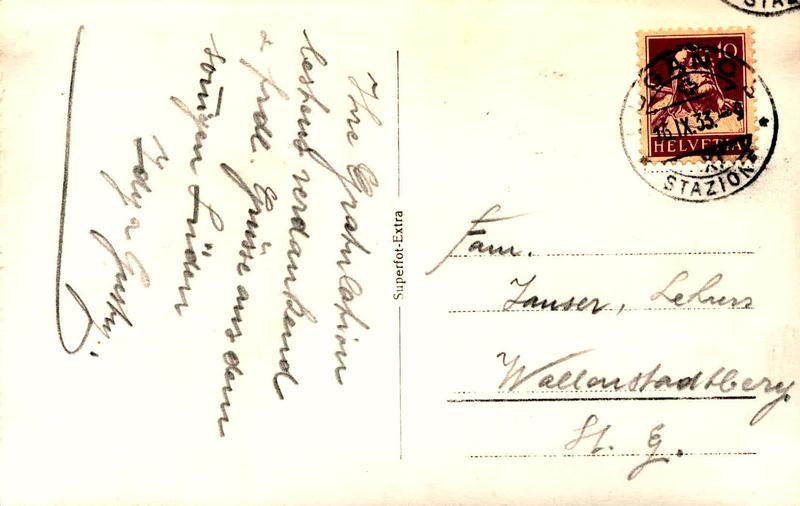 Ihre Gratulation
bestens verdankend
& frdl. Grüsse aus dem
sonnigen Süden
Gusty
Superfot-Extra
10
HELVETIA
LUGANO
16.IX.33.-9
STAZIONE
Fam.
Janser, Lehrers
Wallenstadtberg
St. G.